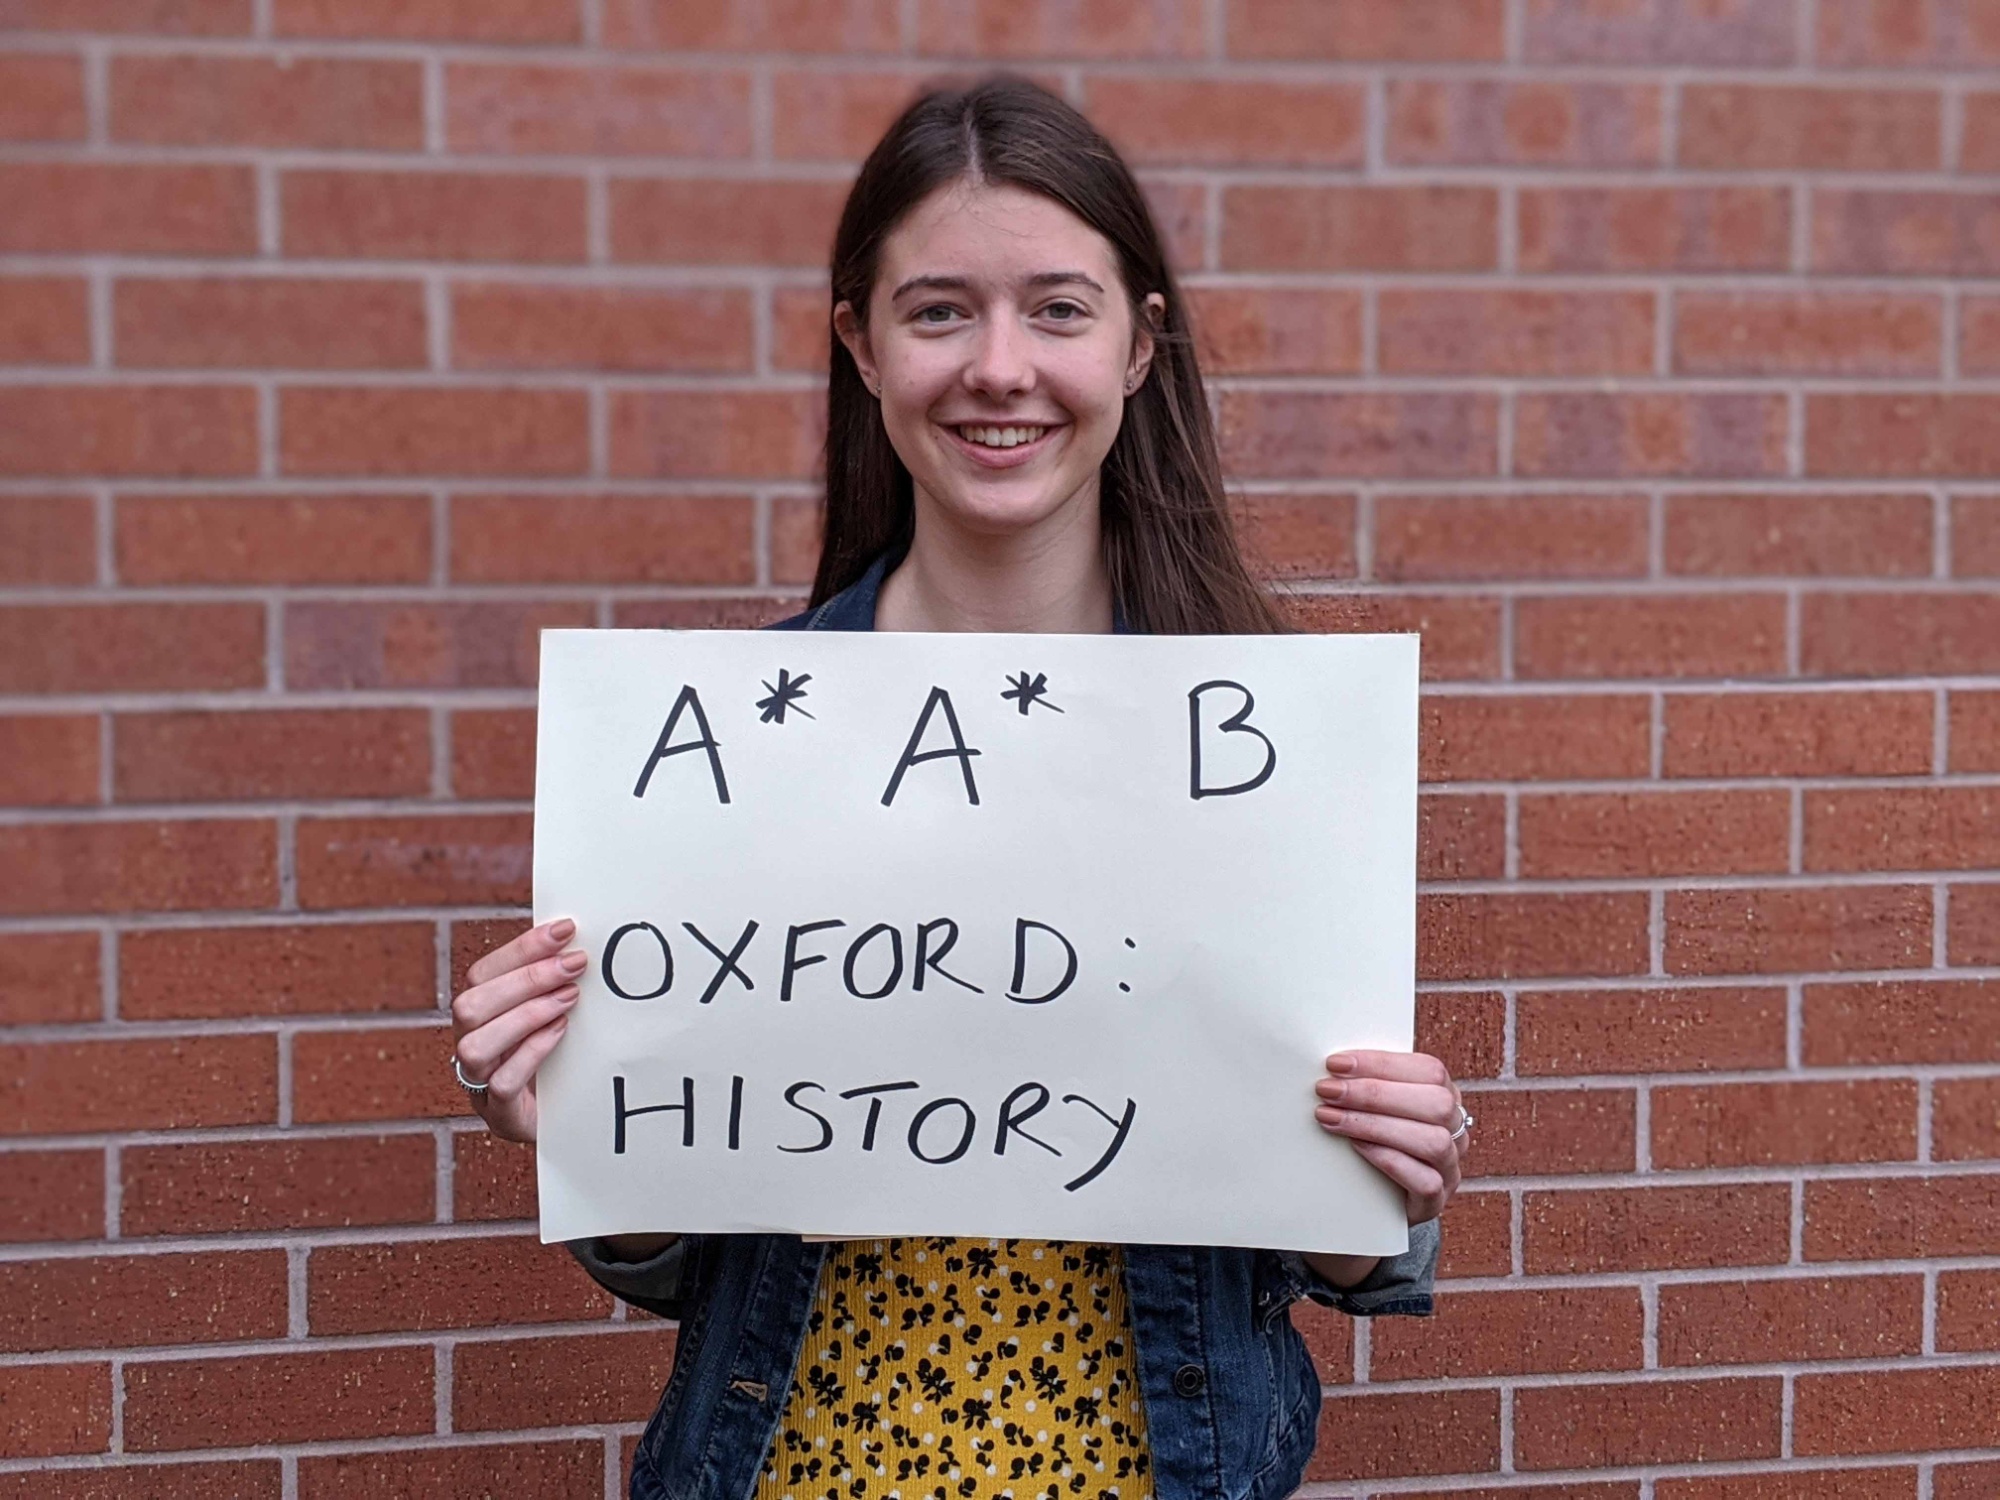 A* A* B
OXFORD:
HISTORY